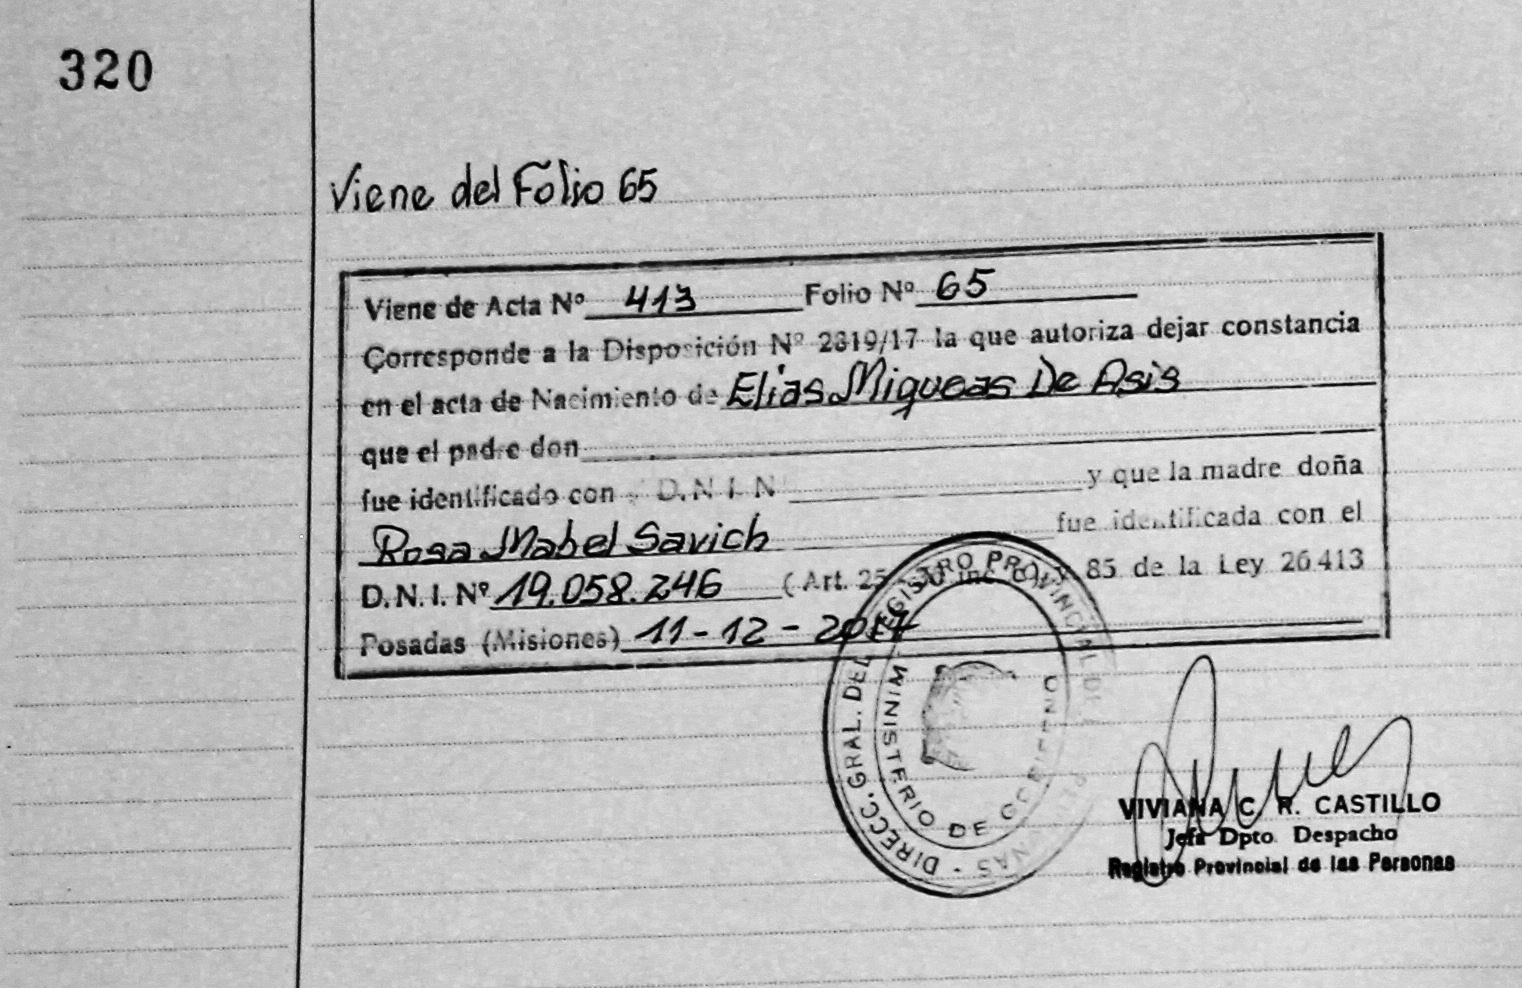 320
Viene del Folio 65
Viene de Acta Nº 413 Folio Nº 65
Corresponde a la Disposición Nº 2319/17 la que autoriza dejar constancia
en el acta de Nacimiento de Elias Miqueas De Asis
que el padre don
fue identificado con D.N.I.N y que la madre doña
Rosa Mabel Savich fue identificada con el
D.N.I. Nº 19.058.246 (Art. 85 de la Ley 26.413
Posadas (Misiones) 11-12-2017
DIRECC. GRAL. DEL REGISTRO PROVINCIAL DE
MINISTERIO DE GOBIERNO
VIVIANA C. R. CASTILLO
Jefa Dpto. Despacho
Registro Provincial de las Personas